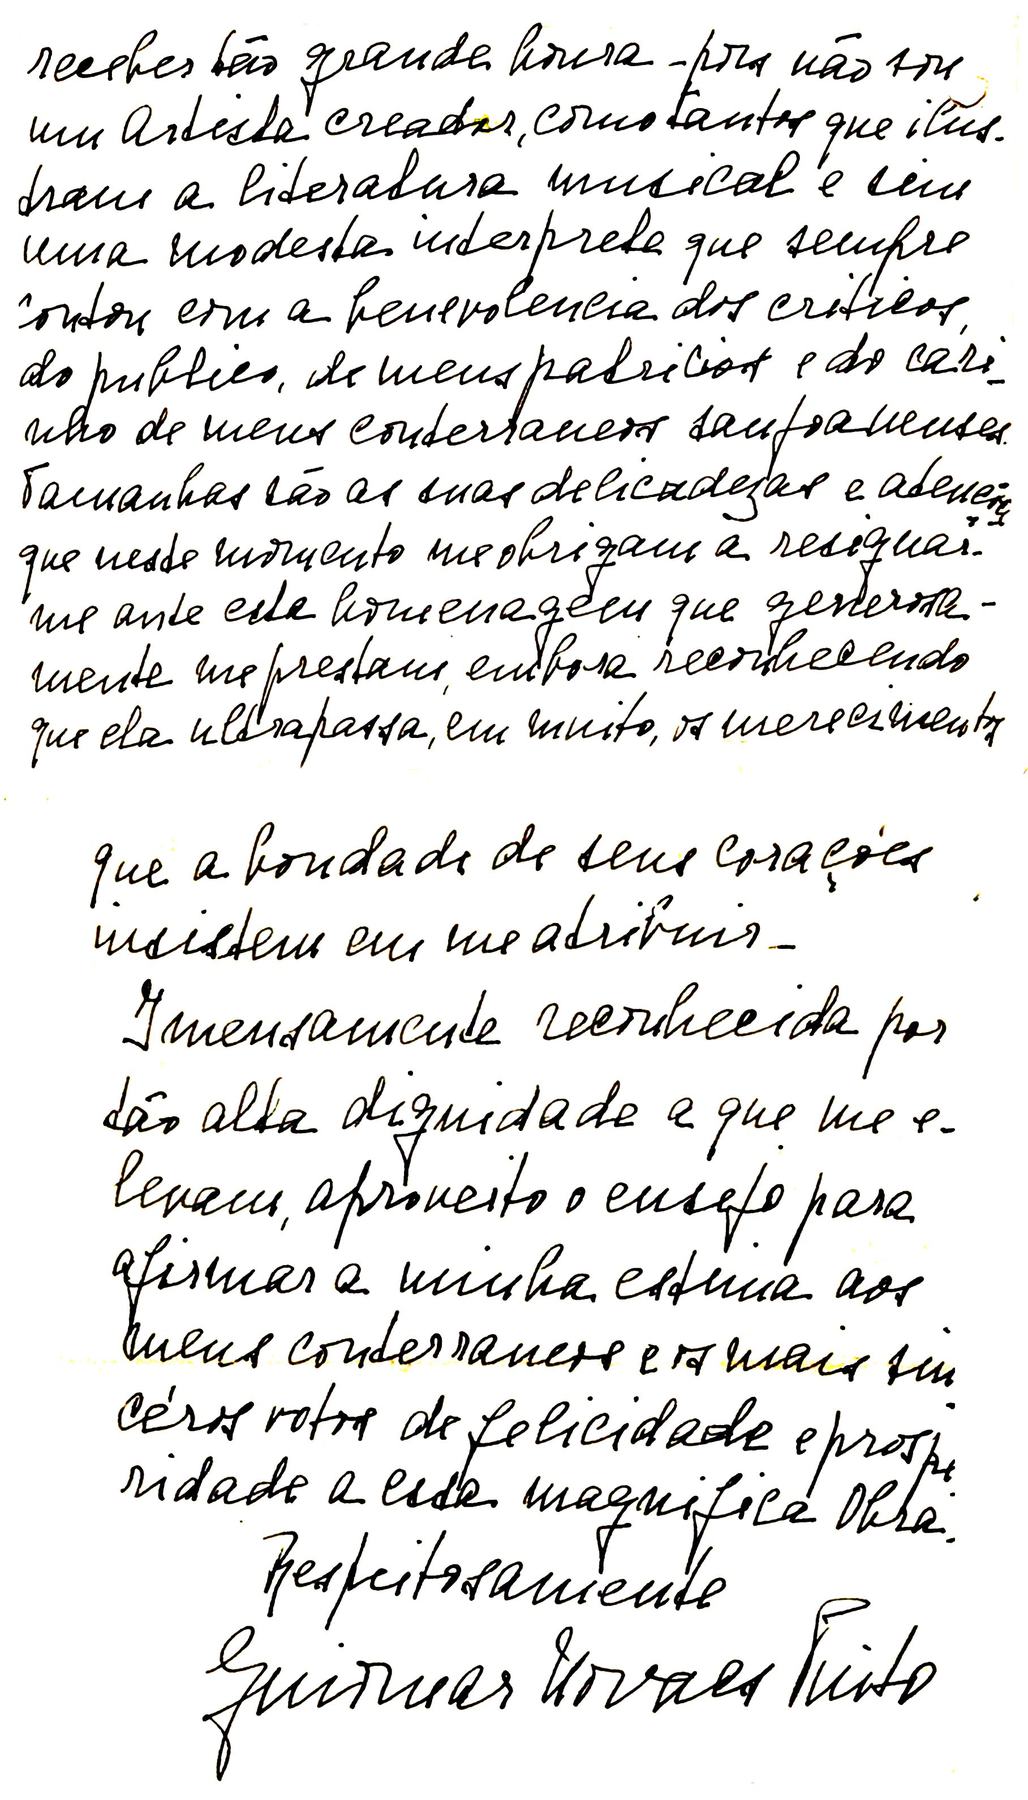 receber tão grande honra - pois não sou
um Artista creador, como tantos que ilus-
tram a literatura musical e sim
uma modesta interprete que sempre
contou com a benevolencia dos criticos,
do publico, de meus patricios e do cari-
nho de meus conterraneos sanjoanenses.
Tamanhas são as suas delicadezas e atenções
que neste momento me obrigam a resignar-
me ante esta homenagem que generosa-
mente me prestam, embora reconhecendo
que ela ultrapassa, em muito, os merecimentos
que a bondade de seus corações
insistem em me atribuir -
Imensamente reconhecida por
tão alta dignidade a que me e-
levam, aproveito o ensejo para
afirmar a minha estima aos
meus conterraneos e os mais sin
céros votos de felicidade e prospe
ridade a essa magnifica Obra.
Respeitosamente
Guiomar Novaes Pinto